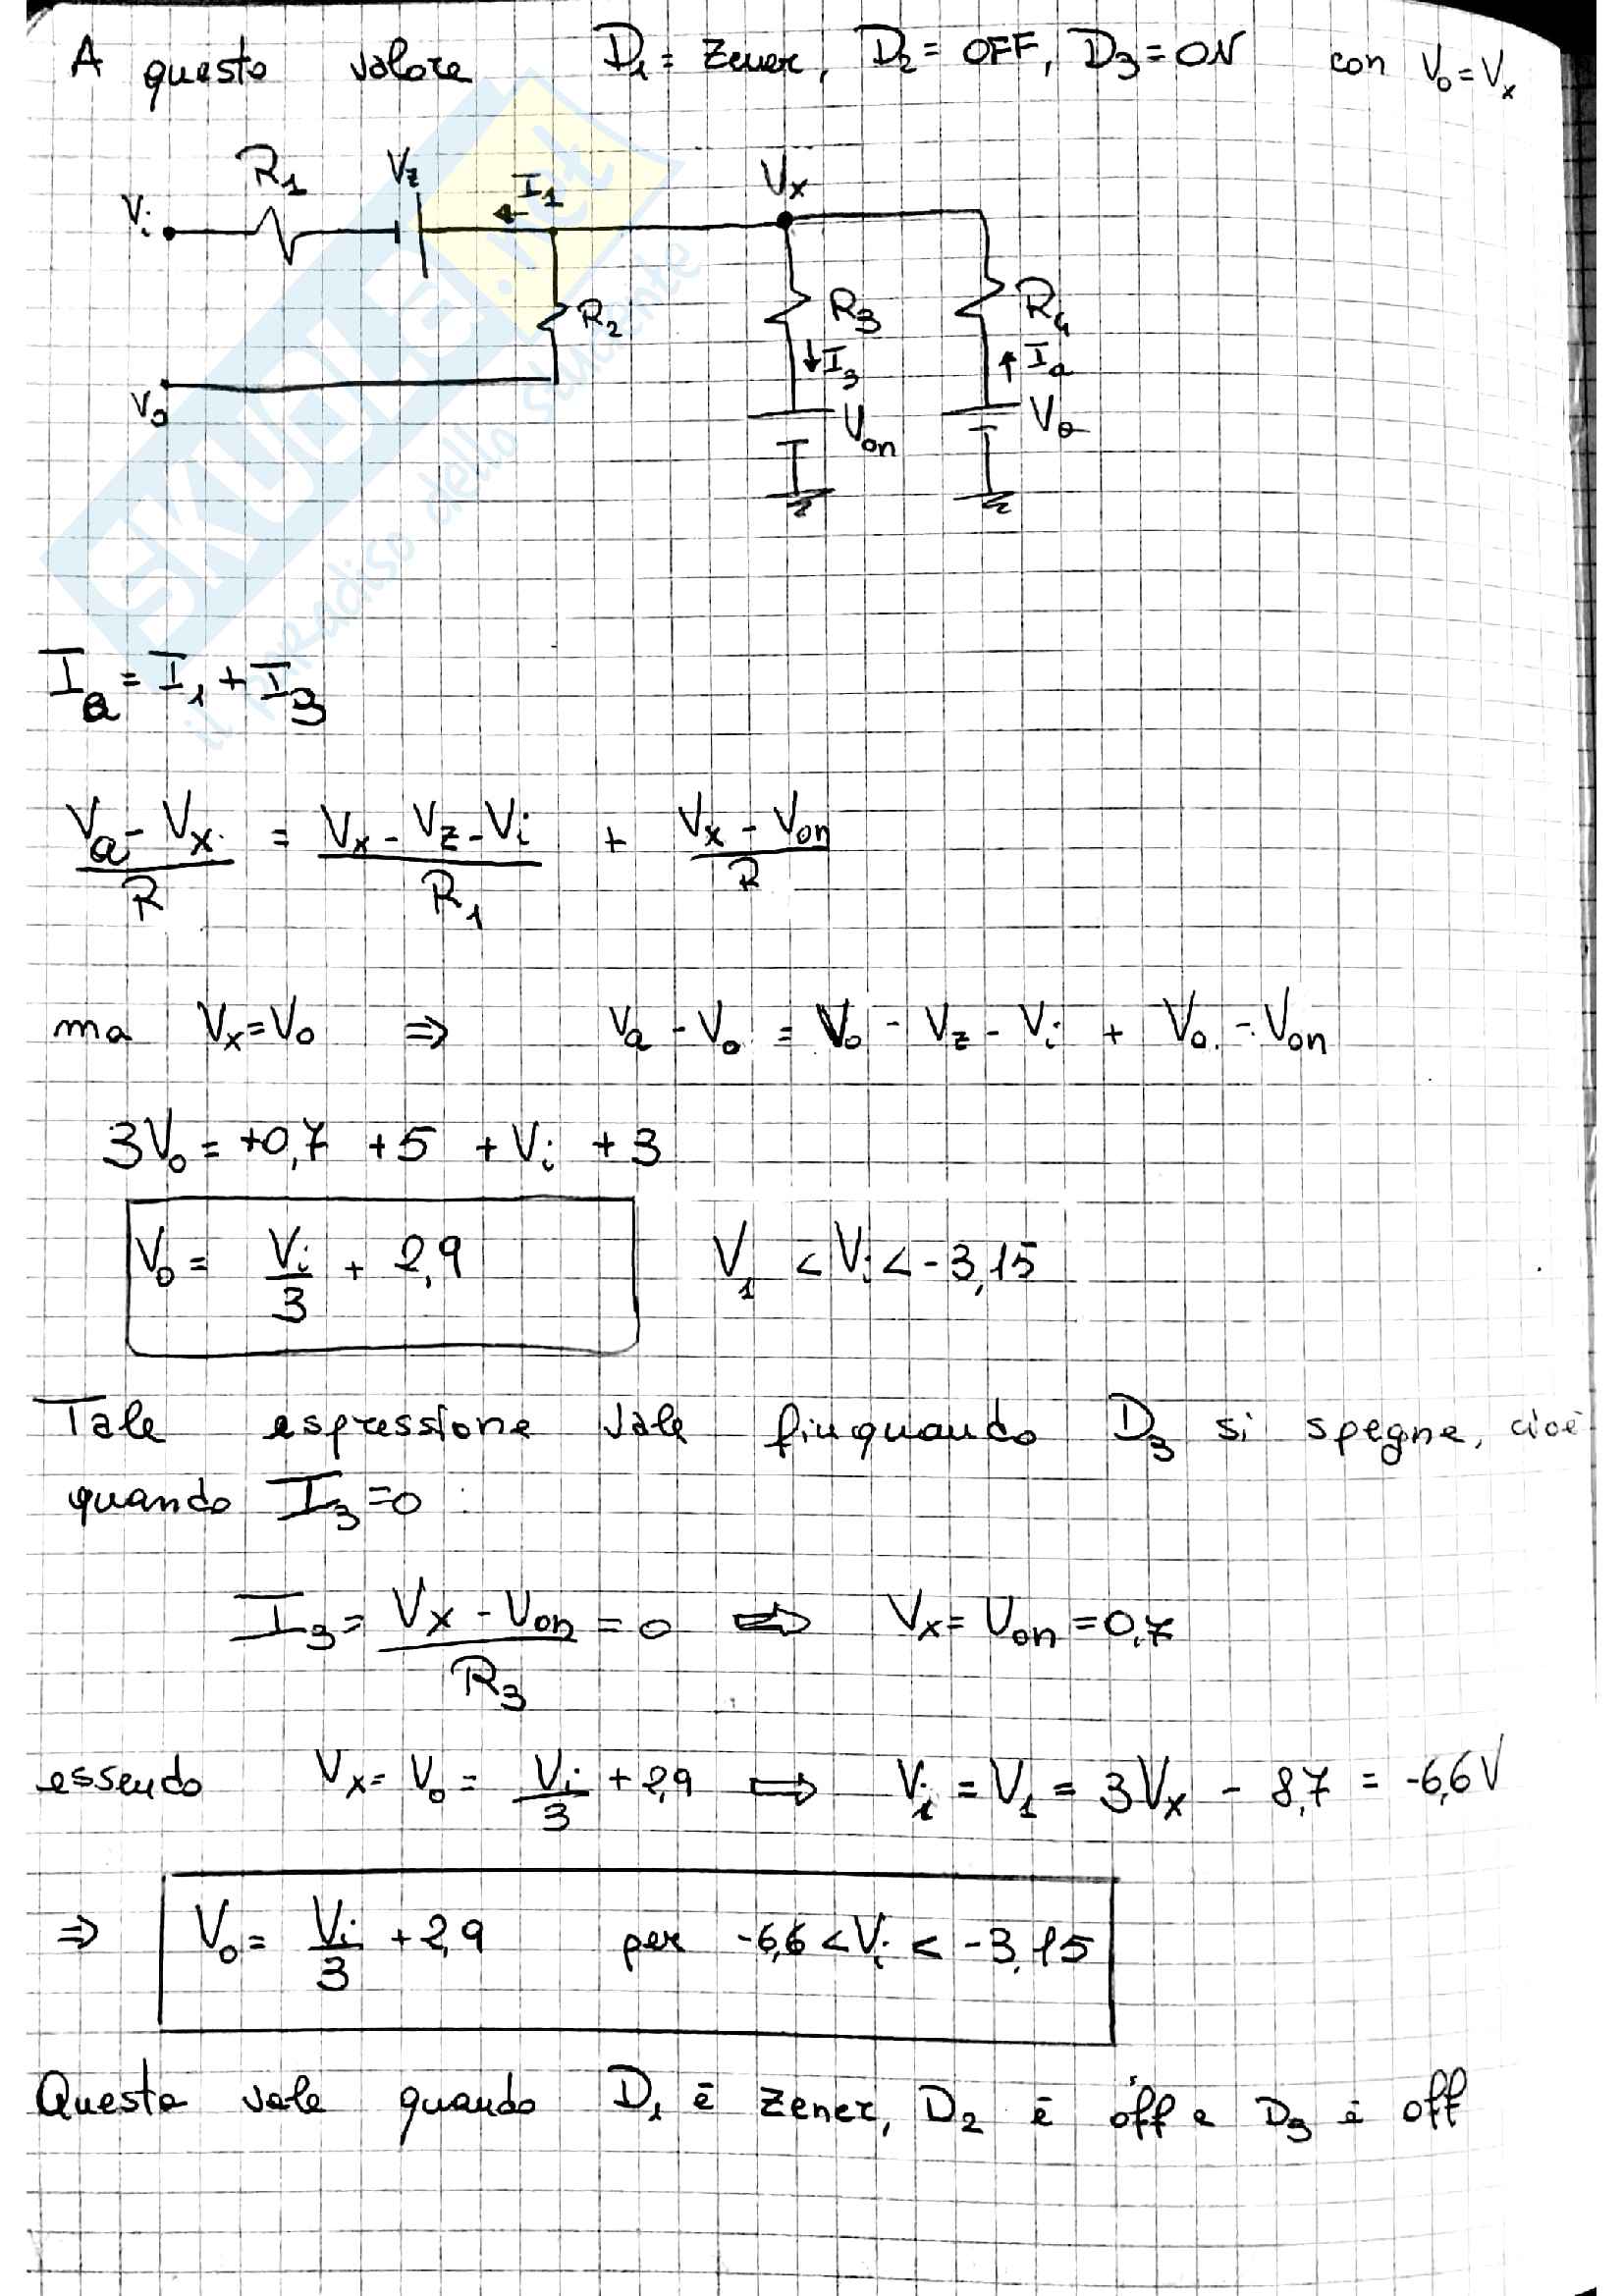 A questo valore D1 = Zener, D2 = OFF, D3 = ON con Vo = Vx
Vi R1 Vz I1 Vx
R2 R3 R4
I3 Ia
Vo Von Va
SKUOLA.net
il paradiso dello studente
Ia = I1 + I3
(Va - Vx)/R = (Vx - Vz - Vi)/R1 + (Vx - Von)/R
ma Vx = Vo ⇒ Va - Vo = Vo - Vz - Vi + Vo - Von
3Vo = +0,7 +5 + Vi + 3
Vo = Vi/3 + 2,9 V1 < Vi < -3,15
Tale espressione vale finquando D3 si spegne, cioè
quando I3 = 0 :
I3 = (Vx - Von)/R3 = 0 ⇨ Vx = Von = 0,7
essendo Vx = Vo = Vi/3 + 2,9 ⇨ Vi = V1 = 3Vx - 8,7 = -6,6V
⇒ Vo = Vi/3 + 2,9 per -6,6 < Vi < -3,15
Questa vale quando D1 è zener, D2 è off e D3 è off